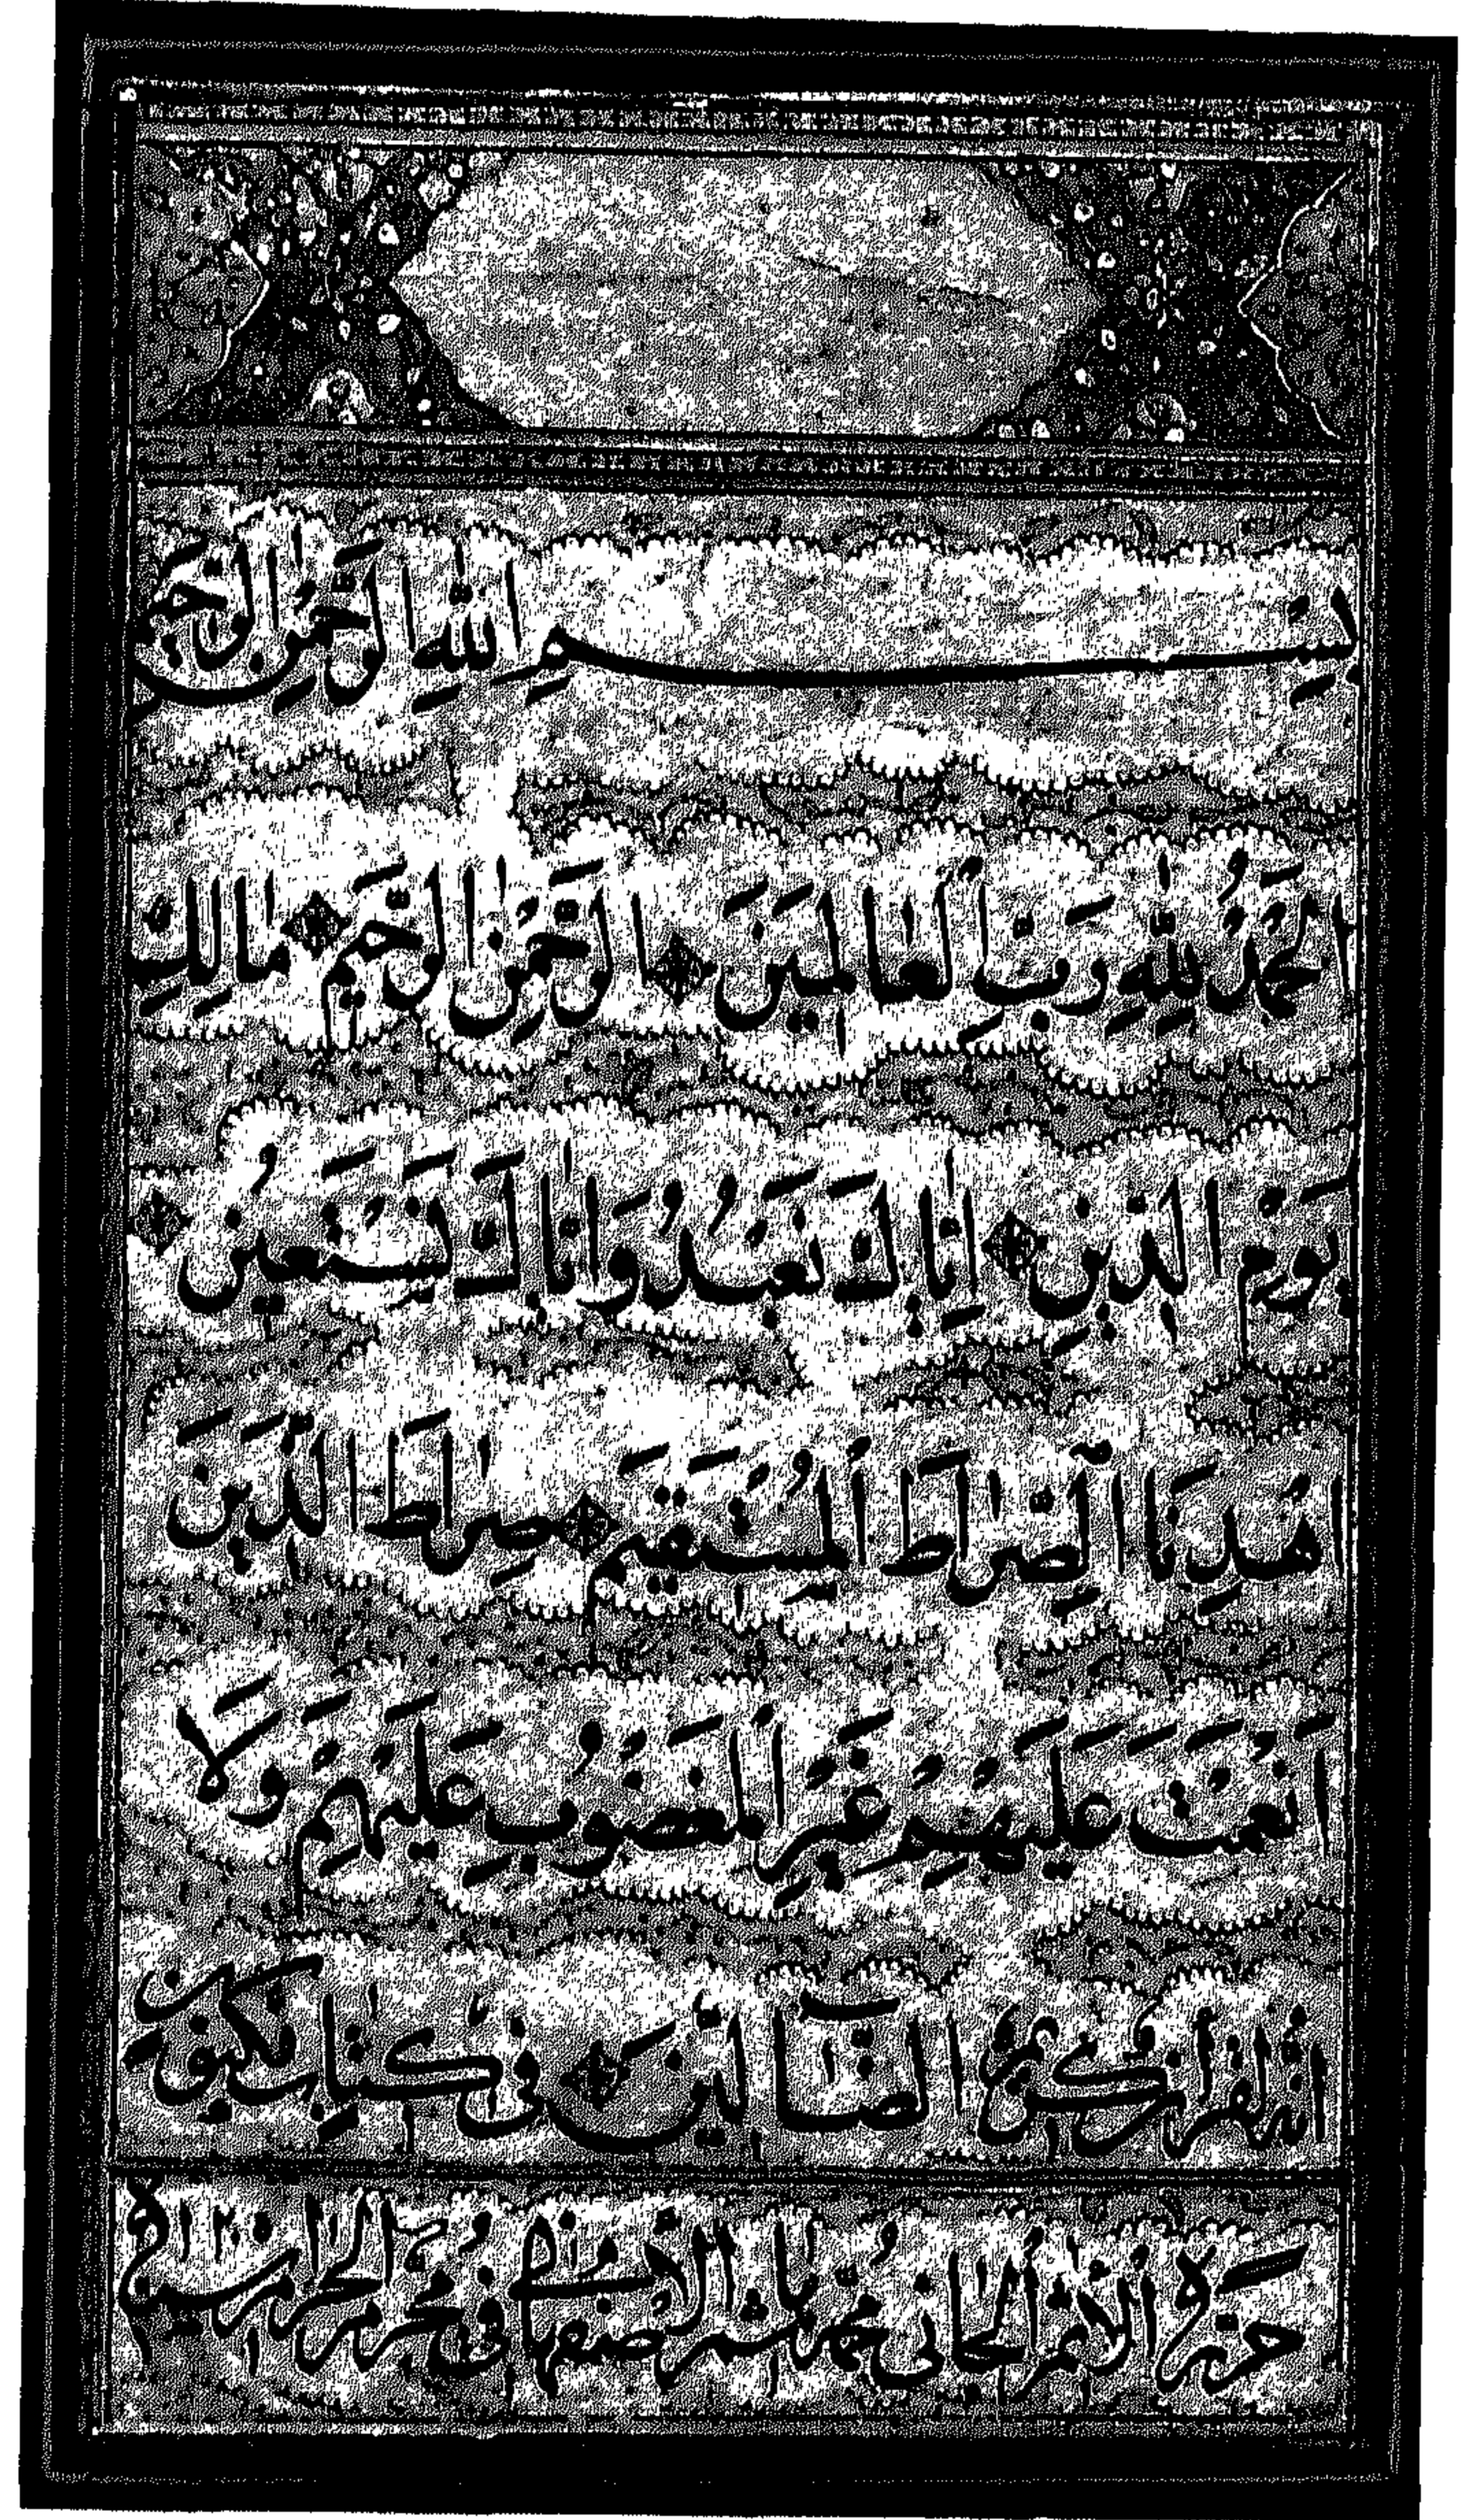 بِسْمِ اللّٰهِ الرَّحْمٰنِ الرَّحِيمِ
اَلْحَمْدُ لِلّٰهِ رَبِّ الْعَالَمِينَ الرَّحْمٰنِ الرَّحِيمِ مَالِكِ
يَوْمِ الدِّينِ اِيَّاكَ نَعْبُدُ وَاِيَّاكَ نَسْتَعِينُ
اِهْدِنَا الصِّرَاطَ الْمُسْتَقِيمَ صِرَاطَ الَّذِينَ
اَنْعَمْتَ عَلَيْهِمْ غَيْرِ الْمَغْضُوبِ عَلَيْهِمْ وَلَا
انه لقرآن كريم الضَّالِّينَ في كتاب مكنون
حرره